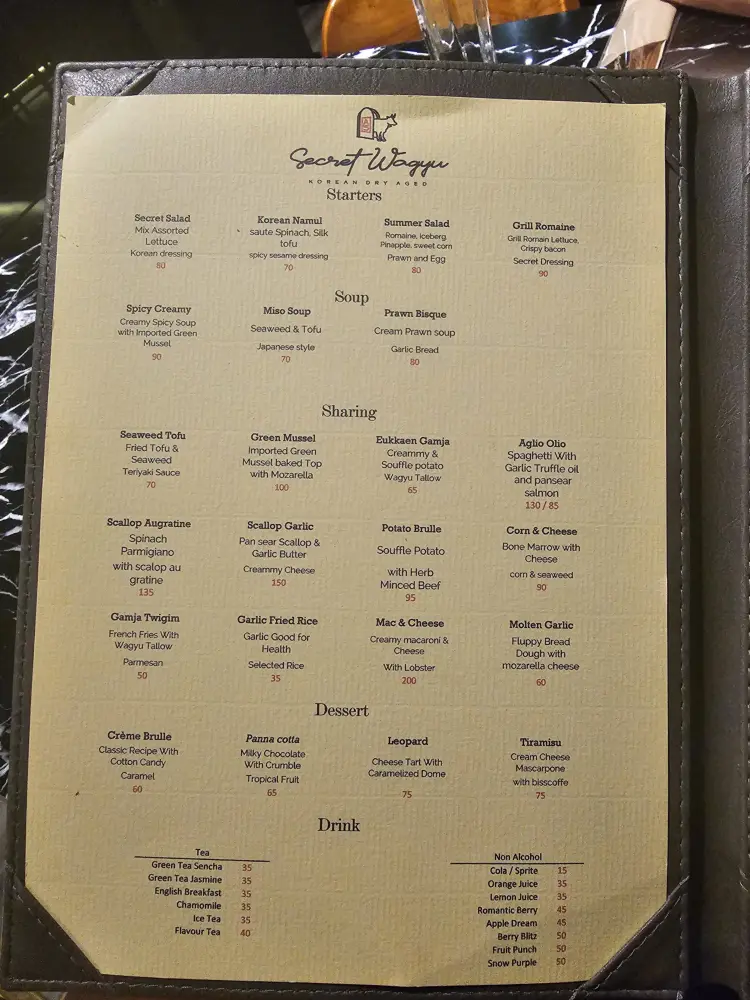 Secret Wagyu
KOREAN DRY AGED
Starters
Secret Salad
Mix Assorted
Lettuce
Korean dressing
80
Korean Namul
saute Spinach, Silk
tofu
spicy sesame dressing
70
Summer Salad
Romaine, iceberg,
Pinapple, sweet corn
Prawn and Egg
80
Grill Romaine
Grill Romain Lettuce,
Crispy bacon
Secret Dressing
90
Soup
Spicy Creamy
Creamy Spicy Soup
with Imported Green
Mussel
90
Miso Soup
Seaweed & Tofu
Japanese style
70
Prawn Bisque
Cream Prawn soup
Garlic Bread
80
Sharing
Seaweed Tofu
Fried Tofu &
Seaweed
Teriyaki Sauce
70
Green Mussel
Imported Green
Mussel baked Top
with Mozarella
100
Eukkaen Gamja
Creammy &
Souffle potato
Wagyu Tallow
65
Aglio Olio
Spaghetti With
Garlic Truffle oil
and pansear
salmon
130 / 85
Scallop Augratine
Spinach
Parmigiano
with scalop au
gratine
135
Scallop Garlic
Pan sear Scallop &
Garlic Butter
Creammy Cheese
150
Potato Brulle
Souffle Potato
with Herb
Minced Beef
95
Corn & Cheese
Bone Marrow with
Cheese
corn & seaweed
90
Gamja Twigim
French Fries With
Wagyu Tallow
Parmesan
50
Garlic Fried Rice
Garlic Good for
Health
Selected Rice
35
Mac & Cheese
Creamy macaroni &
Cheese
With Lobster
200
Molten Garlic
Fluppy Bread
Dough with
mozarella cheese
60
Dessert
Crème Brulle
Classic Recipe With
Cotton Candy
Caramel
60
Panna cotta
Milky Chocolate
With Crumble
Tropical Fruit
65
Leopard
Cheese Tart With
Caramelized Dome
75
Tiramisu
Cream Cheese
Mascarpone
with bisscoffe
75
Drink
Tea
Green Tea Sencha 35
Green Tea Jasmine 35
English Breakfast 35
Chamomile 35
Ice Tea 35
Flavour Tea 40
Non Alcohol
Cola / Sprite 15
Orange Juice 35
Lemon Juice 35
Romantic Berry 45
Apple Dream 45
Berry Blitz 50
Fruit Punch 50
Snow Purple 50